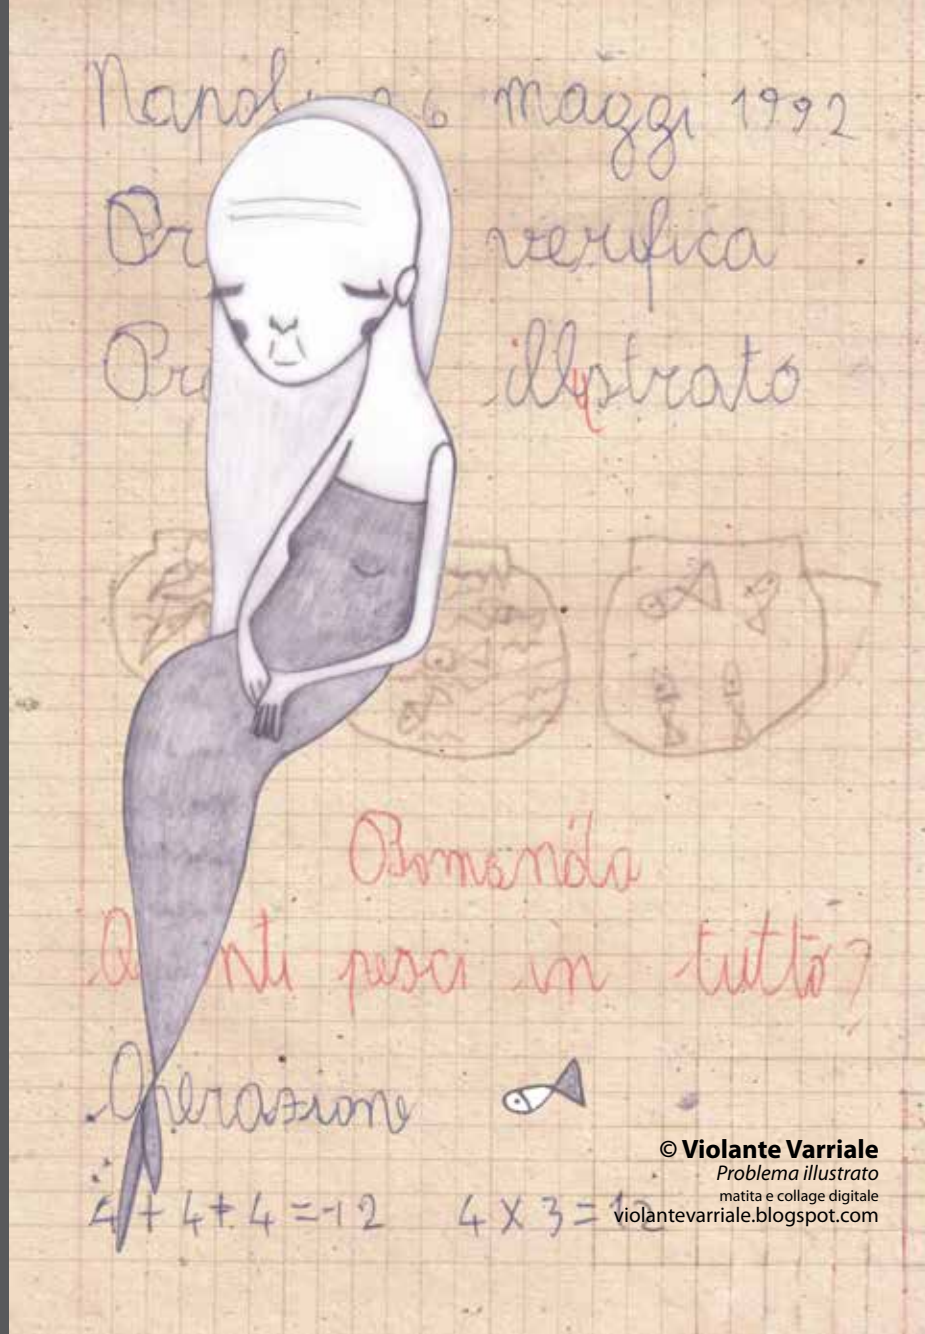 Napoli 26 maggi 1992
Pr verifica
Pr illustrato
Domanda
Q nti pesci in tutto?
Operazione
4+4+4=12 4X3=12
© Violante Varriale
Problema illustrato
matita e collage digitale
violantevarriale.blogspot.com